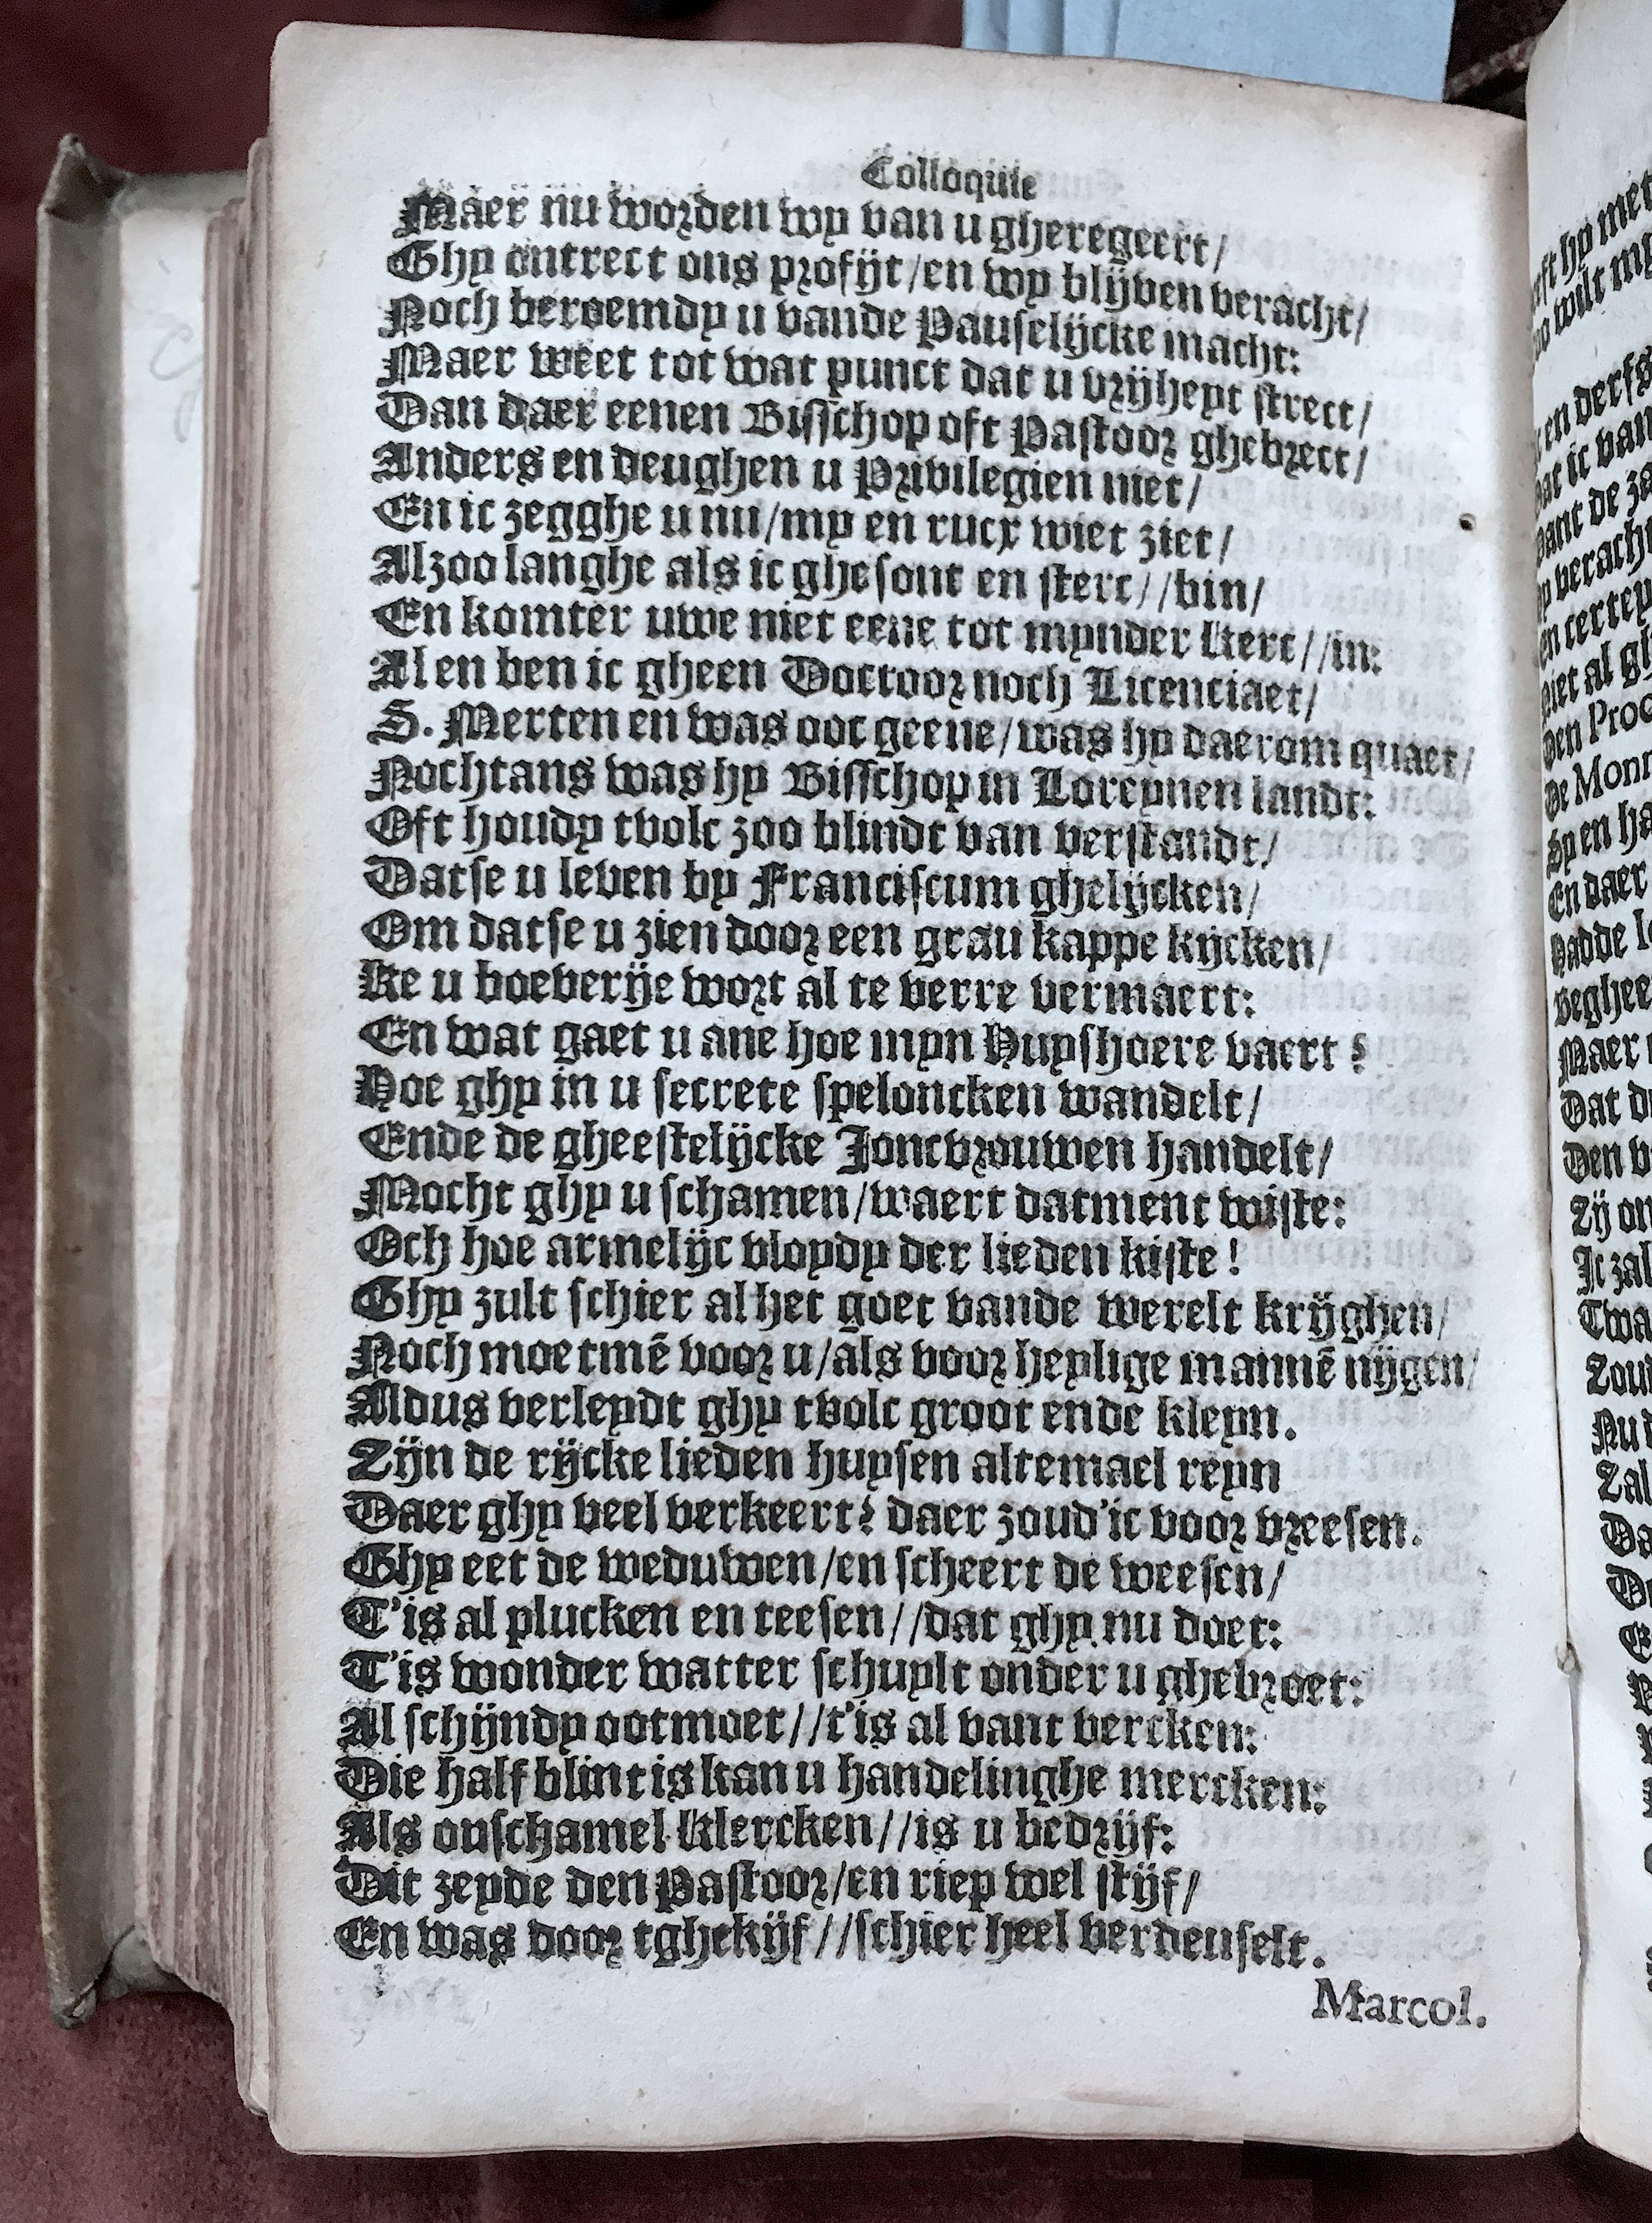 Colloquie
Maer nu worden wy van u gheregeert/
Ghy ontrect ons profijt/en wy blijven veracht/
Noch beroemdy u vande Pauselijcke macht:
Maer weet tot wat punct dat u vrijheyt strect/
Dan daer eenen Bisschop oft Pastoor ghebrect/
Anders en deughen u Privilegien niet/
En ic zegghe u nu/my en rucx wiet ziet/
Alzoo langhe als ic ghesont en sterc//bin/
En komter uwe niet eene tot mynder kerc//in:
Al en ben ic gheen Doctoor noch Licenciaet/
S. Merten en was ooc geene/was hy daerom quaet/
Nochtans was hy Bisschop in Loreynen landt:
Oft houdy tvolc zoo blindt van verstandt/
Datse u leven by Franciscum ghelijcken/
Om datse u zien door een grau kappe kijcken/
Ke u boeverije wort al te verre vermaert:
En wat gaet u ane hoe myn Huyshoere vaert?
Hoe ghy in u secrete speloncken wandelt/
Ende de gheestelijcke Joncvrouwen handelt/
Mocht ghy u schamen/waert datment wiste:
Och hoe armelijc vloydy der lieden kiste!
Ghy zult schier al het goet vande werelt krijghen/
Noch moetmē voor u/als voor heylige mannē nijgen/
Aldus verleydt ghy tvolc groot ende kleyn.
Zijn de rijcke lieden huysen altemael reyn
Daer ghy veel verkeert? daer zoud'ic voor vreesen.
Ghy eet de weduwen/en scheert de weesen/
T'is al plucken en teesen//dat ghy nu doet:
T'is wonder watter schuylt onder u ghebroet:
Al schijndy ootmoet//t'is al vant vercken:
Die half blint is kan u handelinghe mercken:
Als onschamel klercken//is u bedrijf:
Dit zeyde den Pastoor/en riep wel stijf/
En was door tghekijf//schier heel verdeuselt.
Marcol.